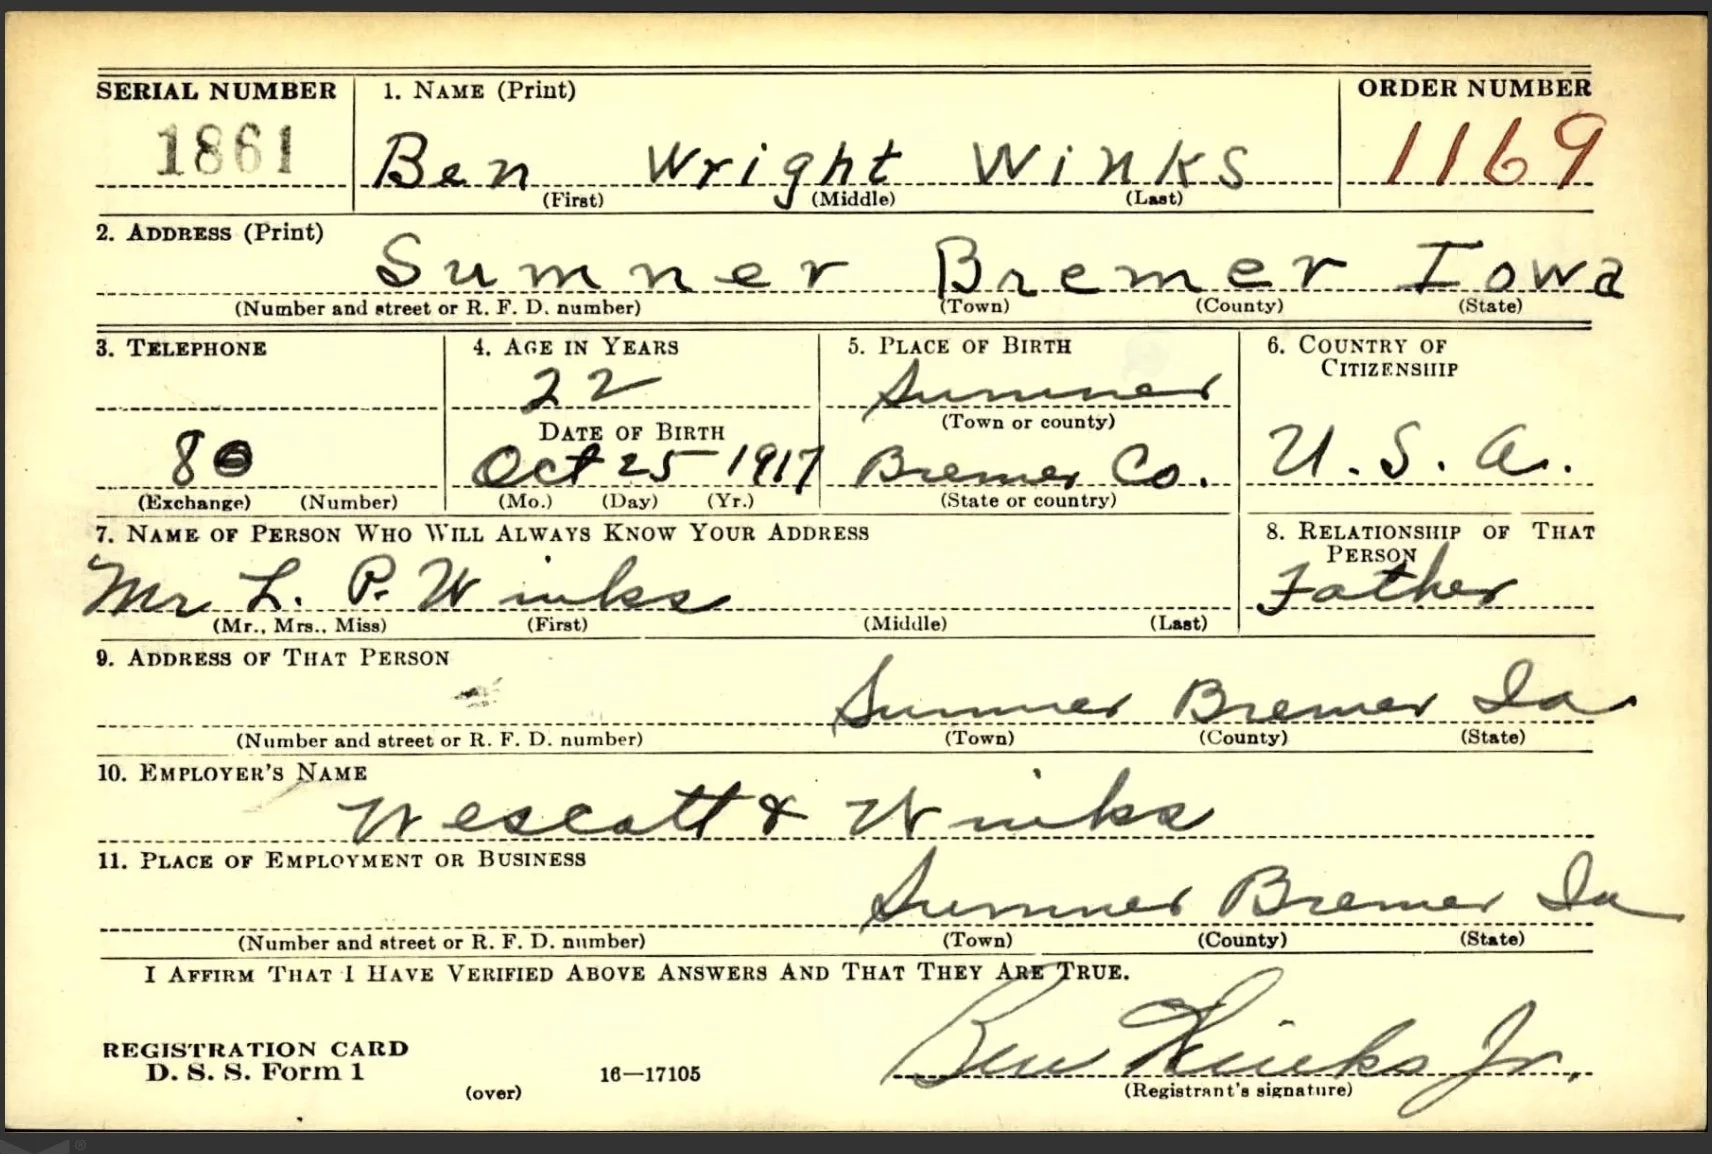 SERIAL NUMBER 1. NAME (Print) ORDER NUMBER
1861 Ben Wright Winks 1169
(First) (Middle) (Last)
2. ADDRESS (Print)
Sumner Bremer Iowa
(Number and street or R. F. D. number) (Town) (County) (State)
3. TELEPHONE 4. AGE IN YEARS 5. PLACE OF BIRTH 6. COUNTRY OF CITIZENSHIP
22 Sumner
(Town or county)
DATE OF BIRTH
80 Oct 25 1917 Bremer Co. U. S. A.
(Exchange) (Number) (Mo.) (Day) (Yr.) (State or country)
7. NAME OF PERSON WHO WILL ALWAYS KNOW YOUR ADDRESS 8. RELATIONSHIP OF THAT PERSON
Mr L. P. Winks Father
(Mr., Mrs., Miss) (First) (Middle) (Last)
9. ADDRESS OF THAT PERSON
Sumner Bremer Ia
(Number and street or R. F. D. number) (Town) (County) (State)
10. EMPLOYER'S NAME
Wescott & Winks
11. PLACE OF EMPLOYMENT OR BUSINESS
Sumner Bremer Ia
(Number and street or R. F. D. number) (Town) (County) (State)
I AFFIRM THAT I HAVE VERIFIED ABOVE ANSWERS AND THAT THEY ARE TRUE.
REGISTRATION CARD
D. S. S. Form 1 16—17105 Ben Winks Jr.
(over) (Registrant's signature)